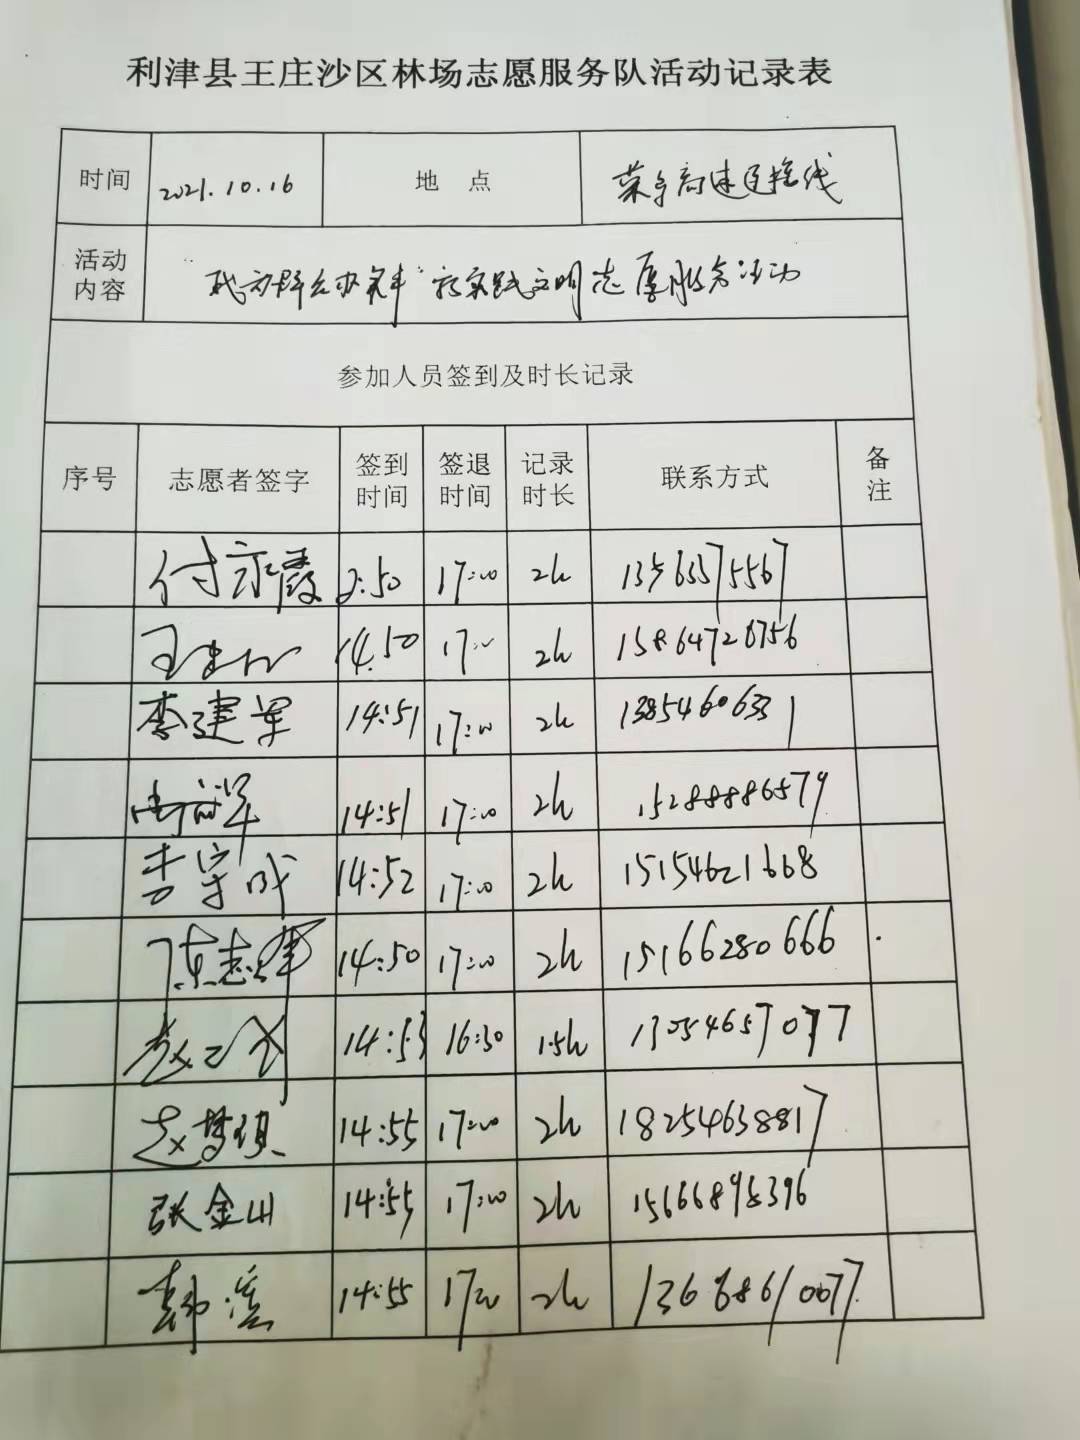 利津县王庄沙区林场志愿服务队活动记录表
时间 2021.10.16 地 点 荣乌高速连接线
活动内容 "我为群众办实事"新实践文明志愿服务活动
参加人员签到及时长记录
序号 志愿者签字 签到时间 签退时间 记录时长 联系方式 备注
付永霞 2:50 17:00 2h
14.50 17:00 2h 15864720756
李建军 14:51 17:00 2h 13854606331
14:51 17:00 2h 15288886579
李宗成 14:52 17:00 2h 15154621668
陈志军 14:50 17:00 2h 15166280666
14:53 16:30 1.5h 13054657077
赵梦琪 14:55 17:00 2h 18254638817
张金山 14:55 17:00 2h 15666898396
14:55 17:00 2h 13668610077